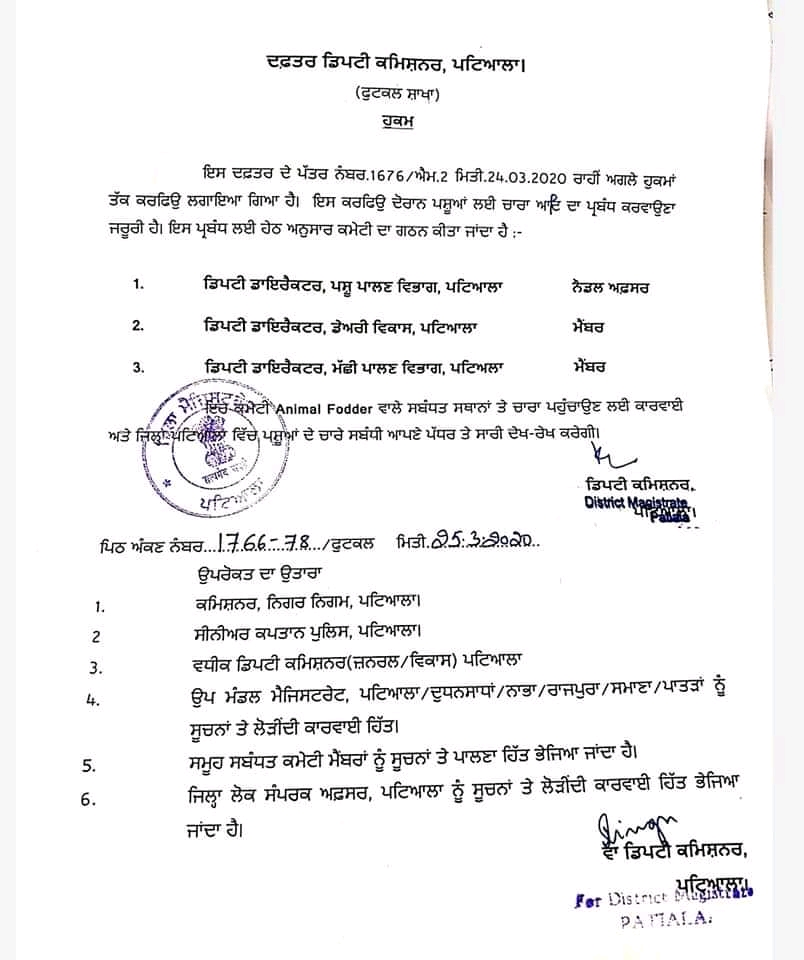 ਦਫ਼ਤਰ ਡਿਪਟੀ ਕਮਿਸ਼ਨਰ, ਪਟਿਆਲਾ।
(ਫੁਟਕਲ ਸ਼ਾਖਾ)
ਹੁਕਮ
ਇਸ ਦਫ਼ਤਰ ਦੇ ਪੱਤਰ ਨੰਬਰ.1676/ਐਮ.2 ਮਿਤੀ.24.03.2020 ਰਾਹੀਂ ਅਗਲੇ ਹੁਕਮਾਂ
ਤੱਕ ਕਰਫਿਊ ਲਗਾਇਆ ਗਿਆ ਹੈ। ਇਸ ਕਰਫਿਊ ਦੌਰਾਨ ਪਸ਼ੂਆਂ ਲਈ ਚਾਰਾ ਆਦਿ ਦਾ ਪ੍ਰਬੰਧ ਕਰਵਾਉਣਾ
ਜਰੂਰੀ ਹੈ। ਇਸ ਪ੍ਰਬੰਧ ਲਈ ਹੇਠ ਅਨੁਸਾਰ ਕਮੇਟੀ ਦਾ ਗਠਨ ਕੀਤਾ ਜਾਂਦਾ ਹੈ :-
1. ਡਿਪਟੀ ਡਾਇਰੈਕਟਰ, ਪਸ਼ੂ ਪਾਲਣ ਵਿਭਾਗ, ਪਟਿਆਲਾ ਨੋਡਲ ਅਫ਼ਸਰ
2. ਡਿਪਟੀ ਡਾਇਰੈਕਟਰ, ਡੇਅਰੀ ਵਿਕਾਸ, ਪਟਿਆਲਾ ਮੈਂਬਰ
3. ਡਿਪਟੀ ਡਾਇਰੈਕਟਰ, ਮੱਛੀ ਪਾਲਣ ਵਿਭਾਗ, ਪਟਿਅਲਾ ਮੈਂਬਰ
ਇਹ ਕਮੇਟੀ Animal Fodder ਵਾਲੇ ਸਬੰਧਤ ਸਥਾਨਾਂ ਤੇ ਚਾਰਾ ਪਹੁੰਚਾਉਣ ਲਈ ਕਾਰਵਾਈ
ਅਤੇ ਜਿਲ੍ਹਾ ਪਟਿਆਲਾ ਵਿੱਚ ਪਸ਼ੂਆਂ ਦੇ ਚਾਰੇ ਸਬੰਧੀ ਆਪਣੇ ਪੱਧਰ ਤੇ ਸਾਰੀ ਦੇਖ-ਰੇਖ ਕਰੇਗੀ।
ਜ਼ਿਲਾ ਮੈਜਿਸਟਰੇਟ
ਪਟਿਆਲਾ
ਡਿਪਟੀ ਕਮਿਸ਼ਨਰ,
District Magistrate
ਪਟਿਆਲਾ।
Patiala
ਪਿਠ ਅੰਕਣ ਨੰਬਰ...1766-78.../ਫੁਟਕਲ ਮਿਤੀ.25.3.2020..
ਉਪਰੋਕਤ ਦਾ ਉਤਾਰਾ
1. ਕਮਿਸ਼ਨਰ, ਨਿਗਰ ਨਿਗਮ, ਪਟਿਆਲਾ।
2 ਸੀਨੀਅਰ ਕਪਤਾਨ ਪੁਲਿਸ, ਪਟਿਆਲਾ।
3. ਵਧੀਕ ਡਿਪਟੀ ਕਮਿਸ਼ਨਰ(ਜ਼ਨਰਲ/ਵਿਕਾਸ) ਪਟਿਆਲਾ
4. ਉਪ ਮੰਡਲ ਮੈਜਿਸਟਰੇਟ, ਪਟਿਆਲਾ/ਦੁਧਨਸਾਧਾਂ/ਨਾਭਾ/ਰਾਜਪੁਰਾ/ਸਮਾਣਾ/ਪਾਤੜਾਂ ਨੂੰ
ਸੂਚਨਾਂ ਤੇ ਲੋੜੀਂਦੀ ਕਾਰਵਾਈ ਹਿੱਤ।
5. ਸਮੂਹ ਸਬੰਧਤ ਕਮੇਟੀ ਮੈਂਬਰਾਂ ਨੂੰ ਸੂਚਨਾਂ ਤੇ ਪਾਲਣਾ ਹਿੱਤ ਭੇਜਿਆ ਜਾਂਦਾ ਹੈ।
6. ਜਿਲ੍ਹਾ ਲੋਕ ਸੰਪਰਕ ਅਫ਼ਸਰ, ਪਟਿਆਲਾ ਨੂੰ ਸੂਚਨਾਂ ਤੇ ਲੋੜੀਂਦੀ ਕਾਰਵਾਈ ਹਿੱਤ ਭੇਜਿਆ
ਜਾਂਦਾ ਹੈ।
ਵਾ ਡਿਪਟੀ ਕਮਿਸ਼ਨਰ,
ਪਟਿਆਲਾ।
For District Magistrate
PATIALA.